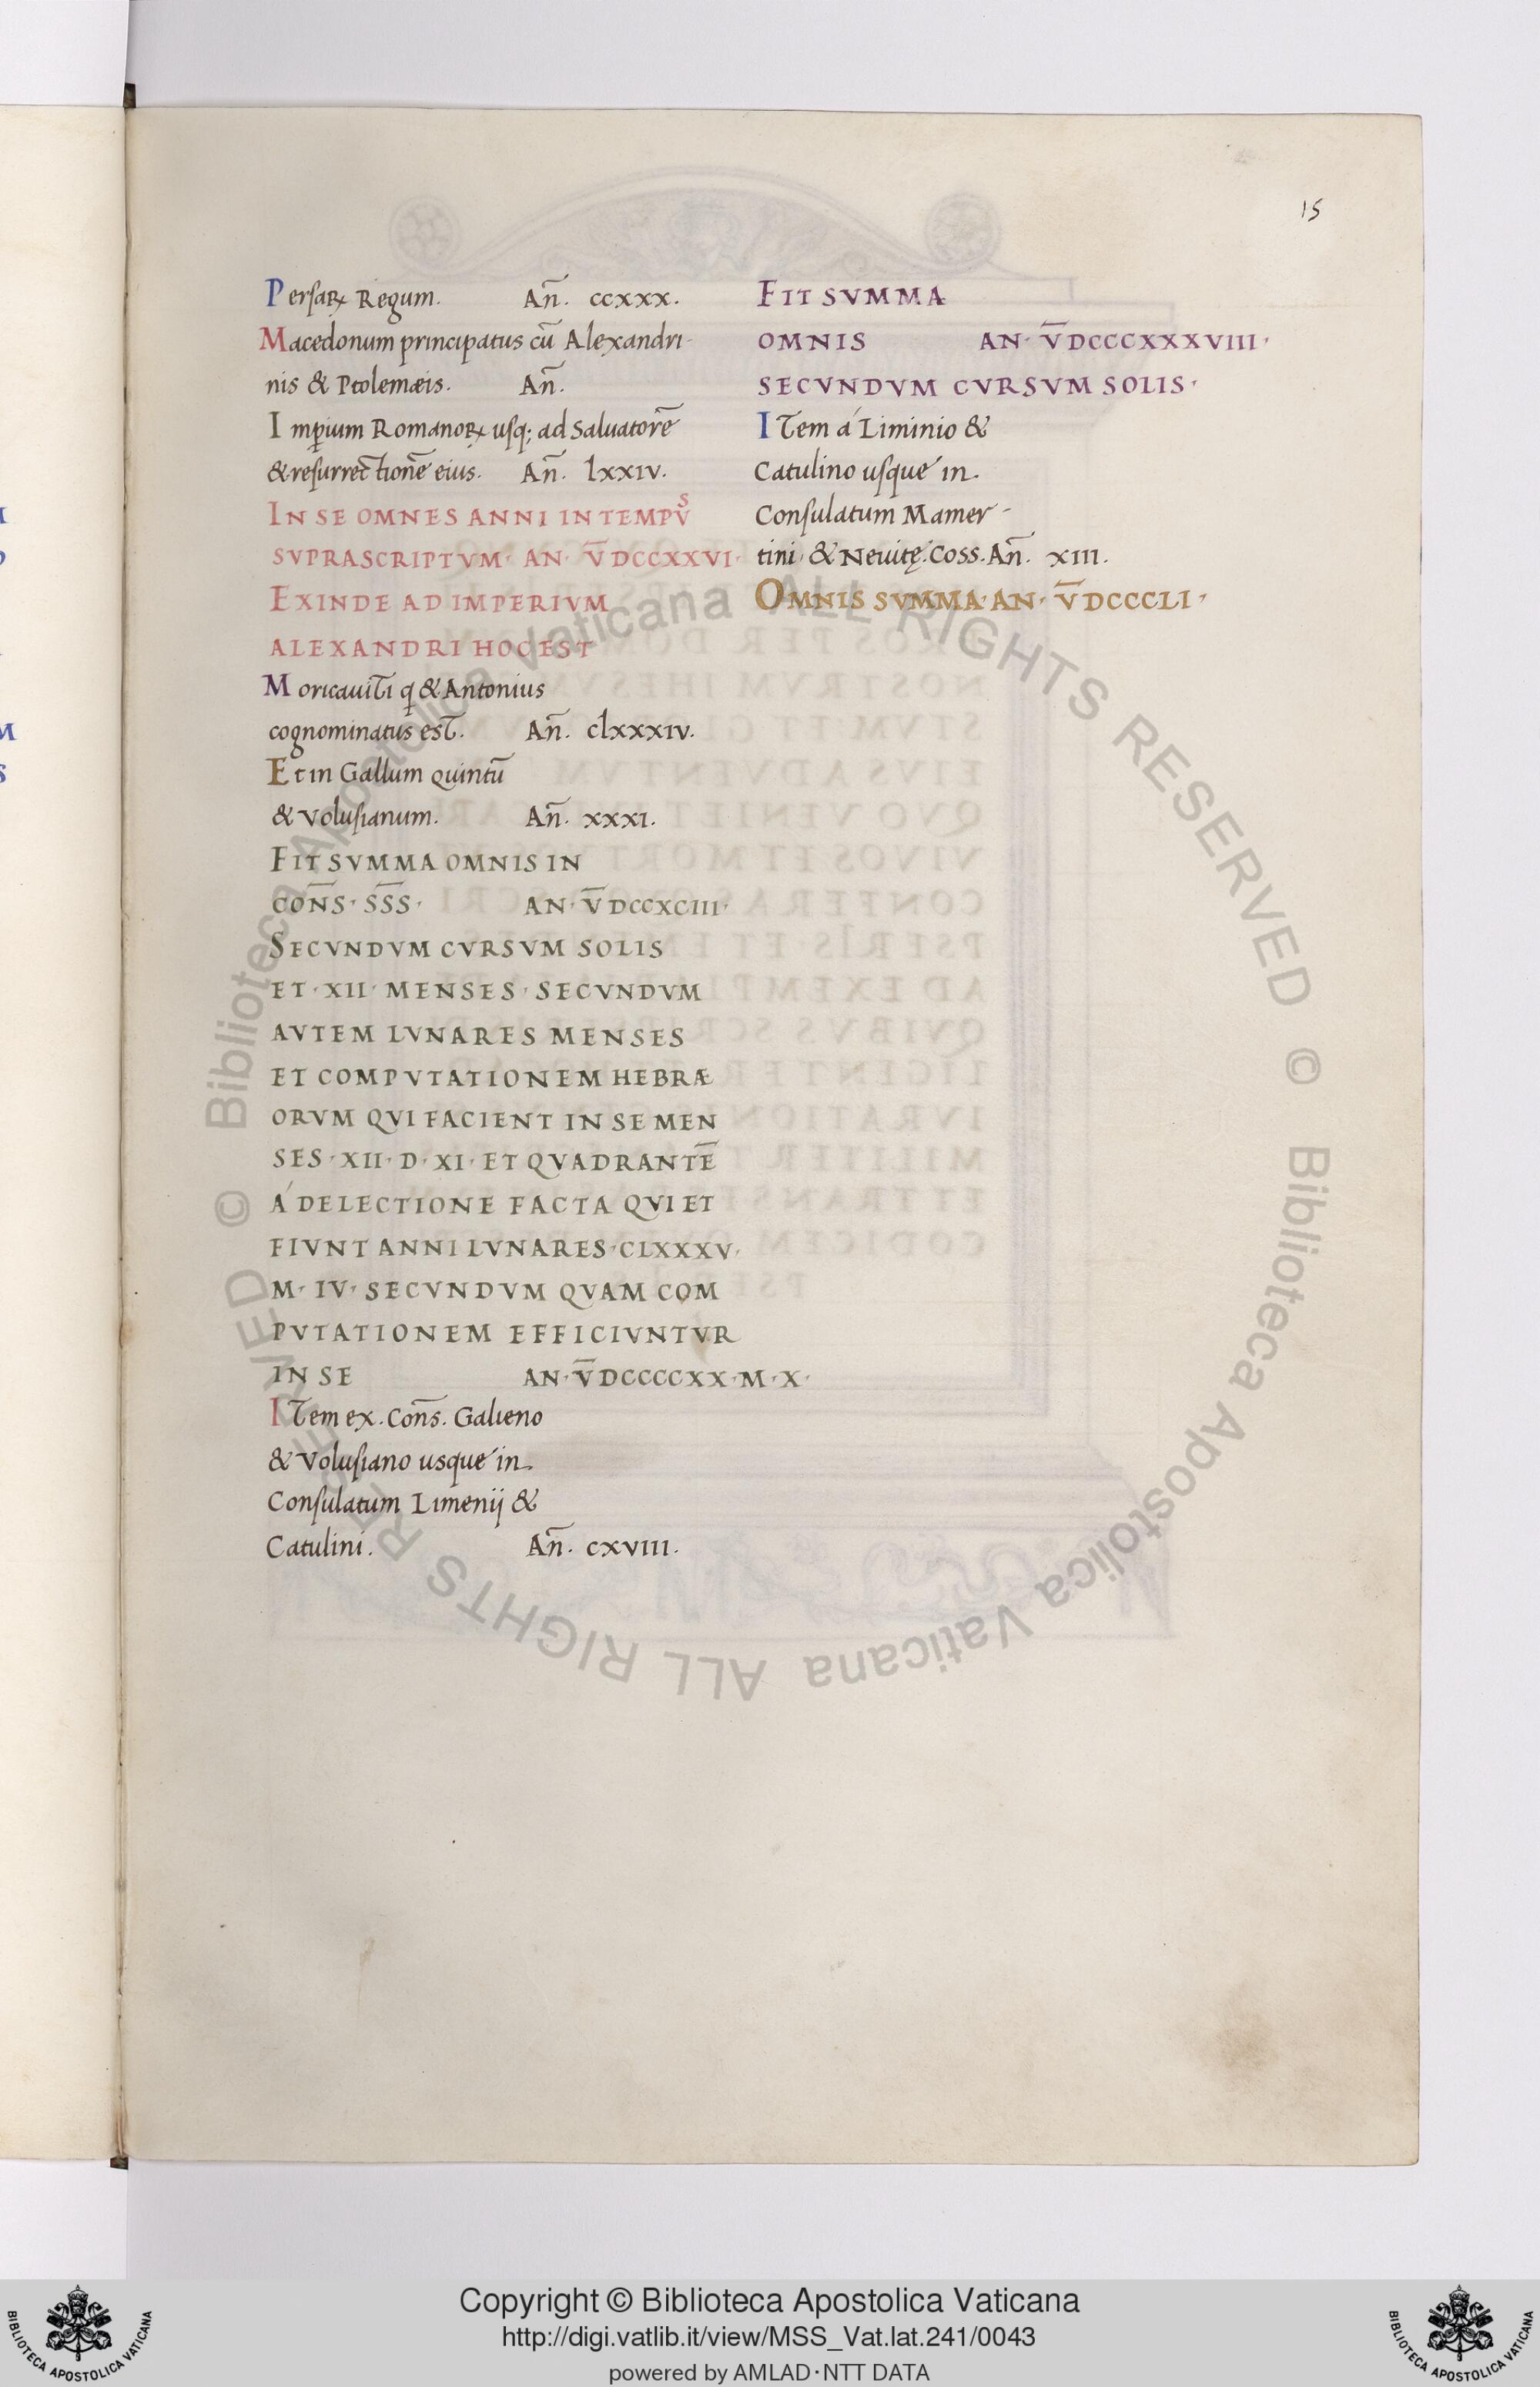 15
Persaꝝ Regum. An̄. ccxxx.
Macedonum principatus cū Alexandri-
nis & Ptolemæis. An̄.
Imꝑium Romanoꝝ usq; ad Saluatorē
& resurrectionē eius. An̄. lxxiv.
IN SE OMNES ANNI IN TEMPVS
SVPRASCRIPTVM· AN· V̅DCCXXVI·
EXINDE AD IMPERIVM
ALEXANDRI HOC EST
Moricauiti q & Antonius
cognominatus est. An̄. clxxxiv.
Et in Gallum quintū
& Volusianum. An̄. xxxi.
FIT SVMMA OMNIS IN
CON̄S· SS̄S· AN· V̅DCCXCIII·
SECVNDVM CVRSVM SOLIS
ET·XII· MENSES· SECVNDVM
AVTEM LVNARES MENSES
ET COMPVTATIONEM HEBRÆ
ORVM QVI FACIENT IN SE MEN
SES·XII·D·XI·ET QVADRANTĒ
Á DELECTIONE FACTA QVI ET
FIVNT ANNI LVNARES·CLXXXV·
M·IV·SECVNDVM QVAM COM
PVTATIONEM EFFICIVNTVR
IN SE AN·V̅DCCCCXX·M·X·
Item ex. Con̄s. Galieno
& Volusiano usque in
Consulatum Limenij &
Catulini. An̄. cxviii.
FIT SVMMA
OMNIS AN· V̅DCCCXXXVIII·
SECVNDVM CVRSVM SOLIS·
Item á Liminio &
Catulino usque in.
Consulatum Mamer-
tini, & Neuitę. Coss. An̄. xiii.
OMNIS SVMMA·AN· V̅DCCCLI·
© Biblioteca Apostolica Vaticana ALL RIGHTS RESERVED © Biblioteca Apostolica Vaticana ALL RIGHTS RESERVED
Copyright © Biblioteca Apostolica Vaticana
http://digi.vatlib.it/view/MSS_Vat.lat.241/0043
powered by AMLAD·NTT DATA
BIBLIOTECA APOSTOLICA VATICANA
BIBLIOTECA APOSTOLICA VATICANA